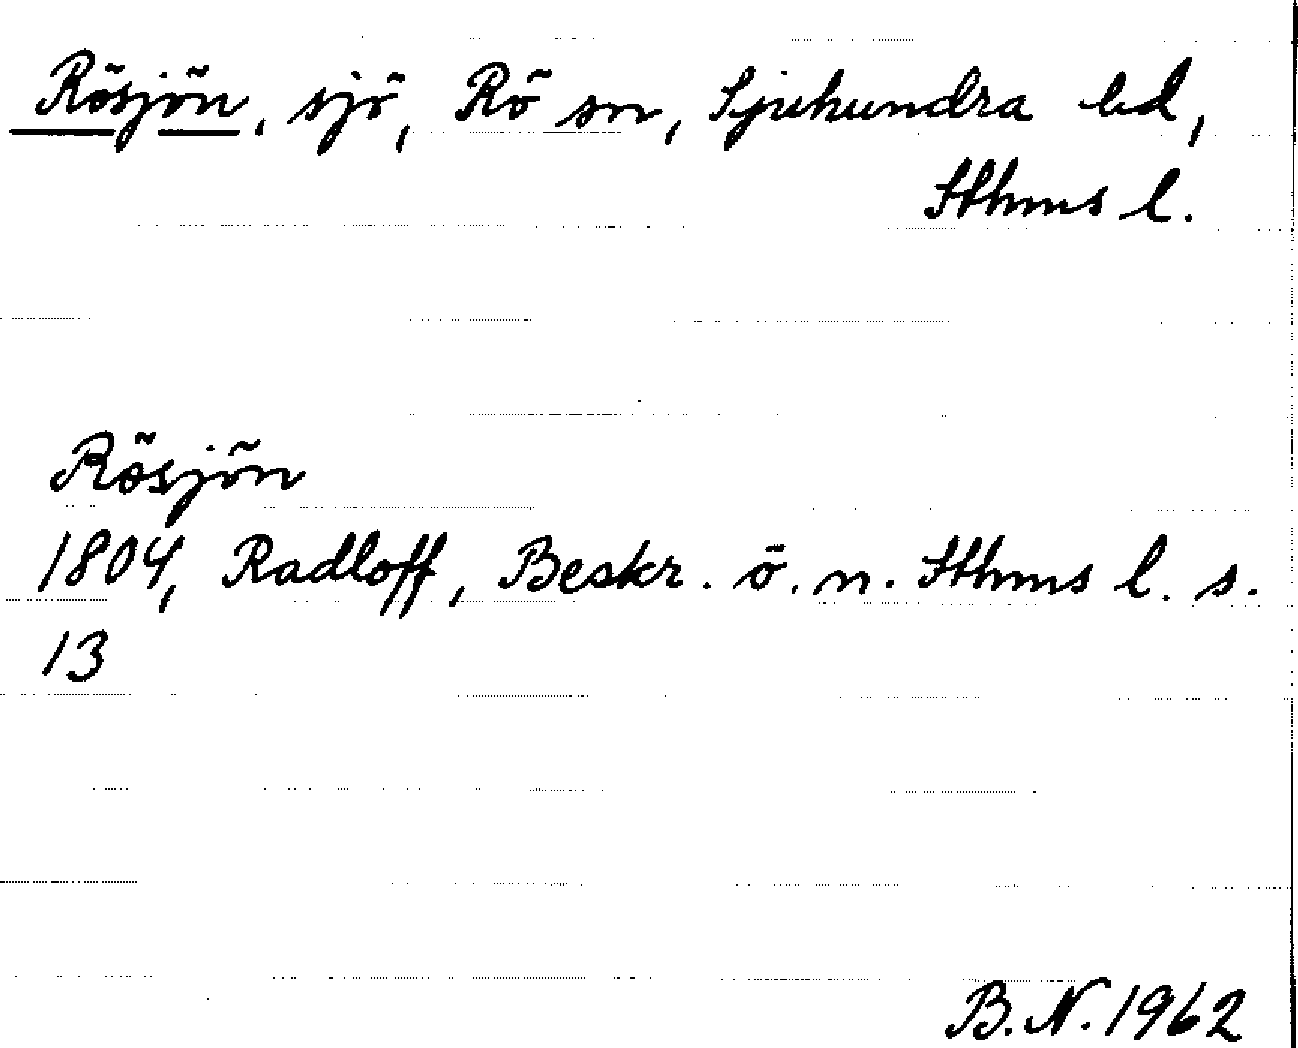 Rösjön, sjö, Rö sn, Sjuhundra hd,
Sthms l.
Rösjön
1804, Radloff, Beskr. ö. n. Sthms l. s.
13
B.N. 1962